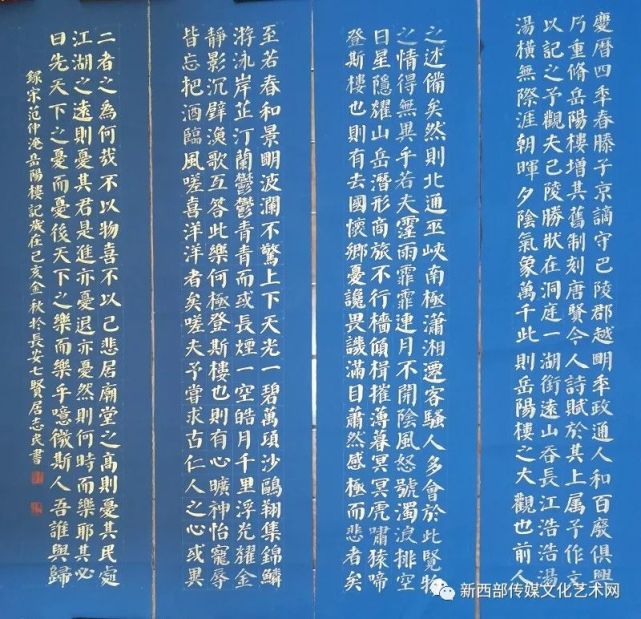 慶曆四年春滕子京謫守巴陵郡越明年政通人和百廢俱興
乃重脩岳陽樓增其舊制刻唐賢今人詩賦於其上属予作文
以記之予觀夫巴陵勝狀在洞庭一湖銜遠山吞長江浩浩湯
湯橫無際涯朝暉夕陰氣象萬千此則岳陽樓之大觀也前人
之述備矣然則北通巫峽南極瀟湘遷客騷人多會於此覽物
之情得無異乎若夫霪雨霏霏連月不開陰風怒號濁浪排空
日星隱耀山岳潛形商旅不行檣傾楫摧薄暮冥冥虎嘯猿啼
登斯樓也則有去國懷鄉憂讒畏譏滿目蕭然感極而悲者矣
至若春和景明波瀾不驚上下天光一碧萬頃沙鷗翔集錦鱗
游泳岸芷汀蘭鬱鬱青青而或長煙一空皓月千里浮光耀金
靜影沉璧漁歌互答此樂何極登斯樓也則有心曠神怡寵辱
皆忘把酒臨風嗟喜洋洋者矣嗟夫予嘗求古仁人之心或異
二者之為何哉不以物喜不以己悲居廟堂之高則憂其民處
江湖之遠則憂其君是進亦憂退亦憂然則何時而樂耶其必
曰先天下之憂而憂後天下之樂而樂乎噫微斯人吾誰與歸
録宋范仲淹岳陽樓記歲在己亥金秋於長安七賢居志民書
新西部传媒文化艺术网